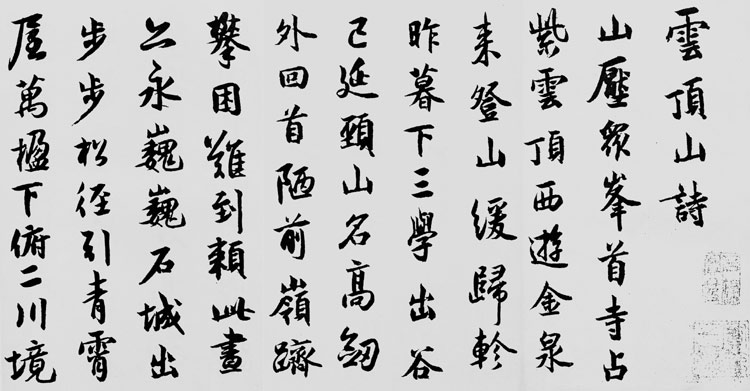 雲頂山詩
山壓衆峯首寺占
紫雲頂西遊金泉
来登山緩歸軫
昨暮下三學出谷
已延頸山名高劒
外回首陋前嶺躋
攀困難到頼此晝
亦永巍巍石城出
步步松徑引青霄
屋萬楹下俯二川境